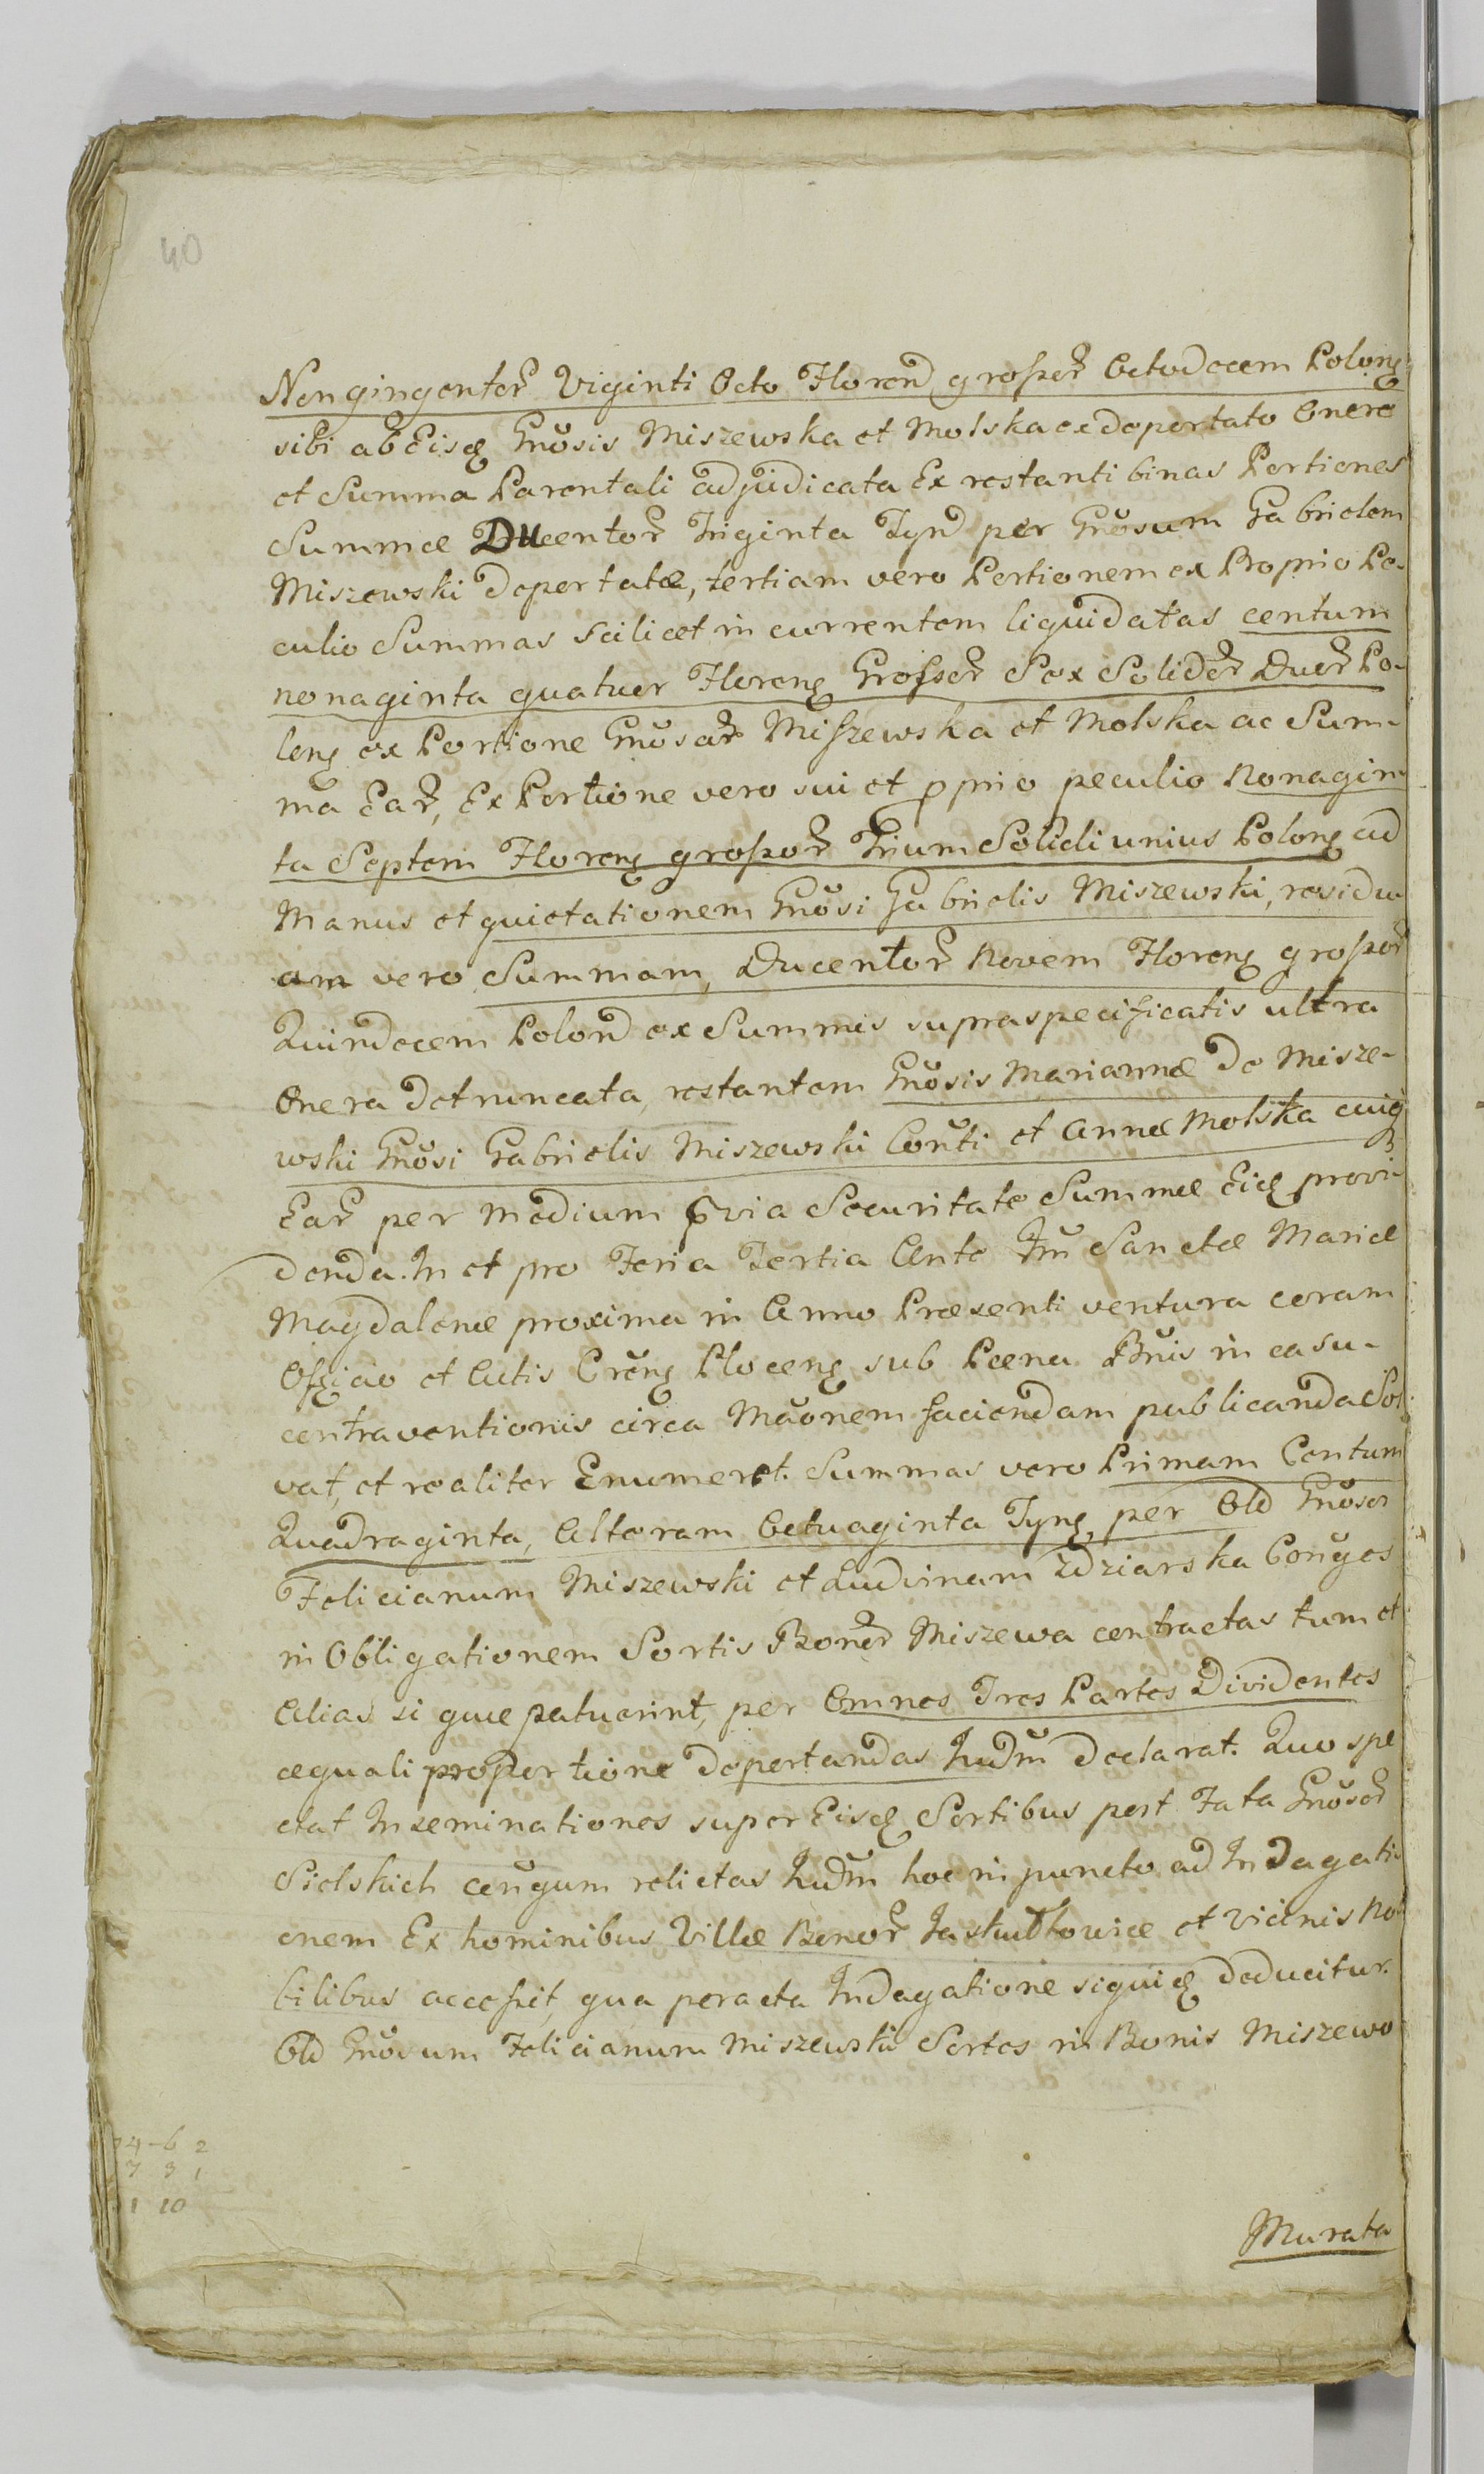 40
Nongingentor Viginti Octo Floren groszor Octodecem Polon
sibi ab Eisd Gnosis Miszewska et Molska ex deportato Onere
et Summa Parentali adjudicata Ex restanti binas Portiones
Summæ Ducentor Triginta Tynf per Gnosum Gabrielem
Miszewski deportatæ, tertiam vero Portionem ex Proprio Pe-
culio Summas scilicet in currentem liquidatas centum
nonaginta quatuor Floren Grossor Sex Solidor Duor Po-
lon ex Portione Gnosar Miszewska et Molska ac Sum-
ma Ear, Ex Portione vero sui et pprio peculio Nonagin-
ta Septem Floren groszor Trium Solidi unius Polon ad
Manus et quietationem Gnosi Gabrielis Miszewski, residu-
am vero Summam, Ducentor Novem Floren groszor
Quindecem Polon ex Summis supraspecificatis ultra
Onera detruncata, restantem Gnosis Mariannæ de Misze-
wski Gnosi Gabrielis Miszewski Conti et Annæ Molska cuiq
Ear per medium pvia Securitate Summæ Eid provi-
denda. In et pro Feria Tertia Ante Fm Sanctæ Mariæ
Magdalenæ proxima in Anno Præsenti ventura coram
Officio et Actis Cren Plocen sub Pæna Bnis in casu-
contraventionis circa Maonem faciendam publicanda Sol
vat, et realiter Enumeret. Summas vero Primam Centum
Quadraginta, Alteram Octuaginta Tynf, per Old Gnosos
Felicianum Miszewski et Ludvinam Zdziarska Conges
in Obligationem Sortis Bonor Miszewa contractas tum et
Alias si quæ patuerint, per Omnes Tres Partes Dividentes
æquali proportione deportandas Judm declarat. Quo spe
ctat Inseminationes super Eisd Sortibus post Fata Gnosor
Sielskich congum relictas Judm hoc in puncto ad Indagati
onem Ex hominibus Villæ Bonor Jaskułkowice et vicinis No
bilibus accessit, qua peracta Indagatione siquid deducitur.
Old Gnosum Felicianum Miszewski Sortes in Bonis Miszewo
4-6 2
7 3 1
1 10
Murata